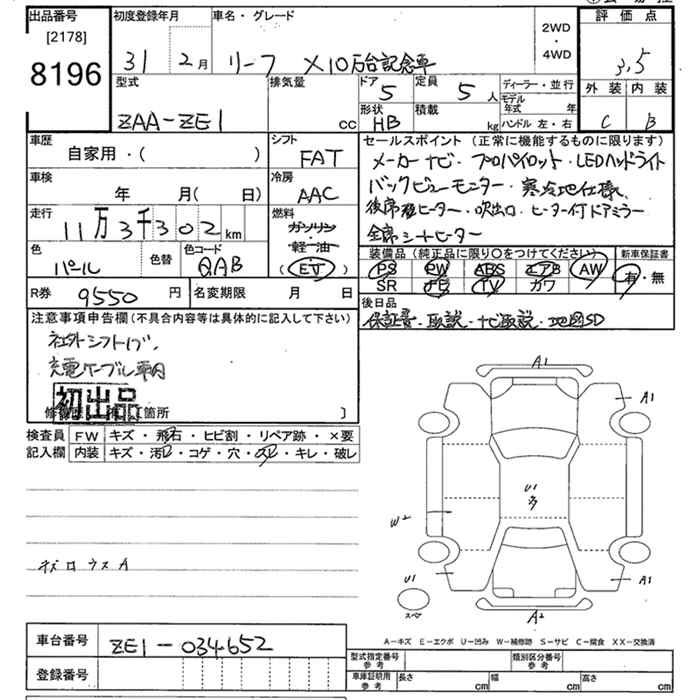 出品番号
[2178]
8196
初度登録年月
31 2月
車名・グレード
リーフ X10万台記念車
2WD
・
4WD
評価点
3.5
外装 内装
C B
型式
ZAA-ZE1
排気量
cc
ドア
5
定員
5人
形状
HB
積載
kg
ディーラー・並行
モデル年式 年
ハンドル 左・右
車歴
自家用・( )
シフト
FAT
車検
年 月( 日)
冷房
AAC
走行
11万3千302km
燃料
ガソリン
軽・油
(EV)
色
パール
色替
色コード
QAB
セールスポイント (正常に機能するものに限ります)
メーカーナビ・プロパイロット・LEDヘッドライト
バックビューモニター・寒冷地仕様、
後席ヒーター・吹出口・ヒーター付ドアミラー
全席シートヒーター
装備品(純正品に限り○をつけてください)
PS PW ABS エアB AW
SR ナビ TV カワ
新車保証書
有・無
R券 9550円
名変期限 月 日
後日品
保証書・取説・ナビ取説・地図SD
注意事項申告欄(不具合内容等は具体的に記入して下さい)
社外シフトノブ
充電ケーブル
初出品
箇所 〕
検査員
記入欄
FW キズ・飛石・ヒビ割・リペア跡・×要
内装 キズ・汚レ・コゲ・穴・スレ・キレ・破レ
ボロウスA
A1
A1
U1
多
W2
U1
スペア
A1
A2
A-キズ E-エクボ U-凹み W-補修跡 S-サビ C-腐食 XX-交換済
車台番号
ZE1-034652
登録番号
型式指定番号
参考
類別区分番号
参考
車庫証明用
参考
長さ cm
幅 cm
高さ cm